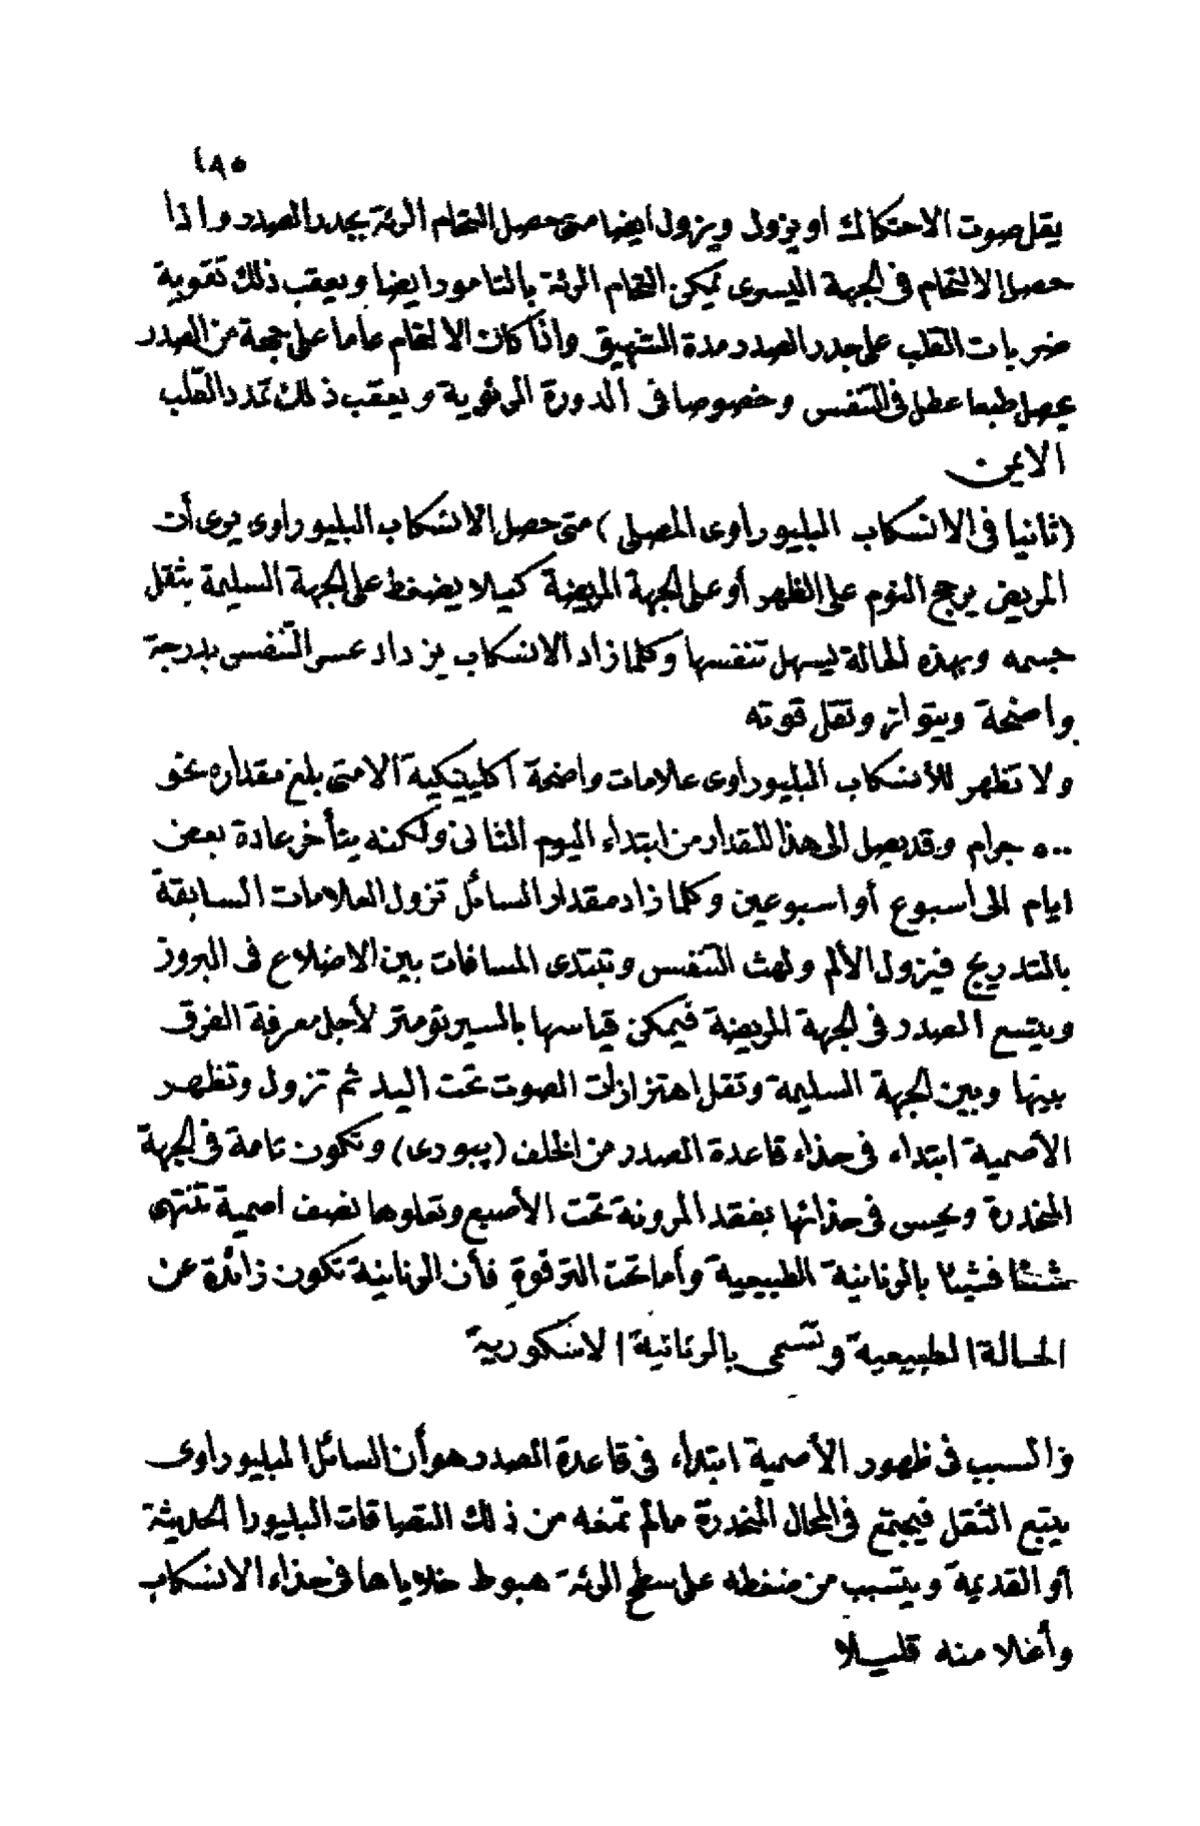 ٤٨٥
يقل صوت الاحتكاك او يزول ويزول ايضا متى حصل التحام الرئة بجدر الصدر واذا
حصل الالتحام فى الجهة اليسرى يمكن التحام الرئة بالتامور ايضا ويعقب ذلك تقوية
ضربات القلب على جدر الصدر مدة الشهيق واذا كان الالتحام عاما على جهة من الصدر
يحصل طبعا عطل فى التنفس وخصوصا فى الدورة الرئوية ويعقب ذلك تمدد القلب
الايمن
(ثانيا فى الانسكاب البليوراوى المصلى) متى حصل الانسكاب البليوراوى يرى أن
المريض يرجح النوم على الظهر أو على الجهة المريضة كيلا يضغط على الجهة السليمة بثقل
جسمه وبهذه الحالة يسهل تنفسها وكلما زاد الانسكاب يزداد عسر التنفس بدرجة
واضحة ويتواتر وتقل قوته
ولا تظهر للأنسكاب البليوراوى علامات واضحة اكلينيكية الامتى بلغ مقداره نحو
٥٠٠ جرام وقد يصل الى هذا المقدار من ابتداء اليوم الثانى ولكنه يتأخر عادة بعض
ايام الى اسبوع أو اسبوعين وكلما زاد مقدار السائل تزول العلامات السابقة
بالتدريج فيزول الألم ولهث التنفس وتبتدى المسافات بين الاضلاع فى البروز
ويتسع الصدر فى الجهة المريضة فيمكن قياسها بالسيرتومتر لأجل معرفة الفرق
بينها وبين الجهة السليمة وتقل اهتزازات الصوت تحت اليد ثم تزول وتظهر
الأصمية ابتداء فى حذاء قاعدة الصدر من الخلف (پيورى) وتكون تامة فى الجهة
المنحدرة ويحس فى حذائها بفقد المرونة تحت الأصبع وتعلوها نصف اصمية تنتهى
شيئا فشيئا بالرنانية الطبيعية وأما تحت الترقوة فأن الرنانية تكون زائدة عن
الحالة الطبيعية وتسمى بالرنانية الاسكورية
والسبب فى ظهور الأصمية ابتداء فى قاعدة الصدر هو أن السائل البليوراوى
يتبع الثقل فيجتمع فى المحال المنحدرة مالم تمنعه من ذلك التصاقات البليورا الحديثة
أو القديمة ويتسبب من ضغطه على سطح الرئة هبوط خلاياها فى حذاء الانسكاب
وأعلا منه قليلا